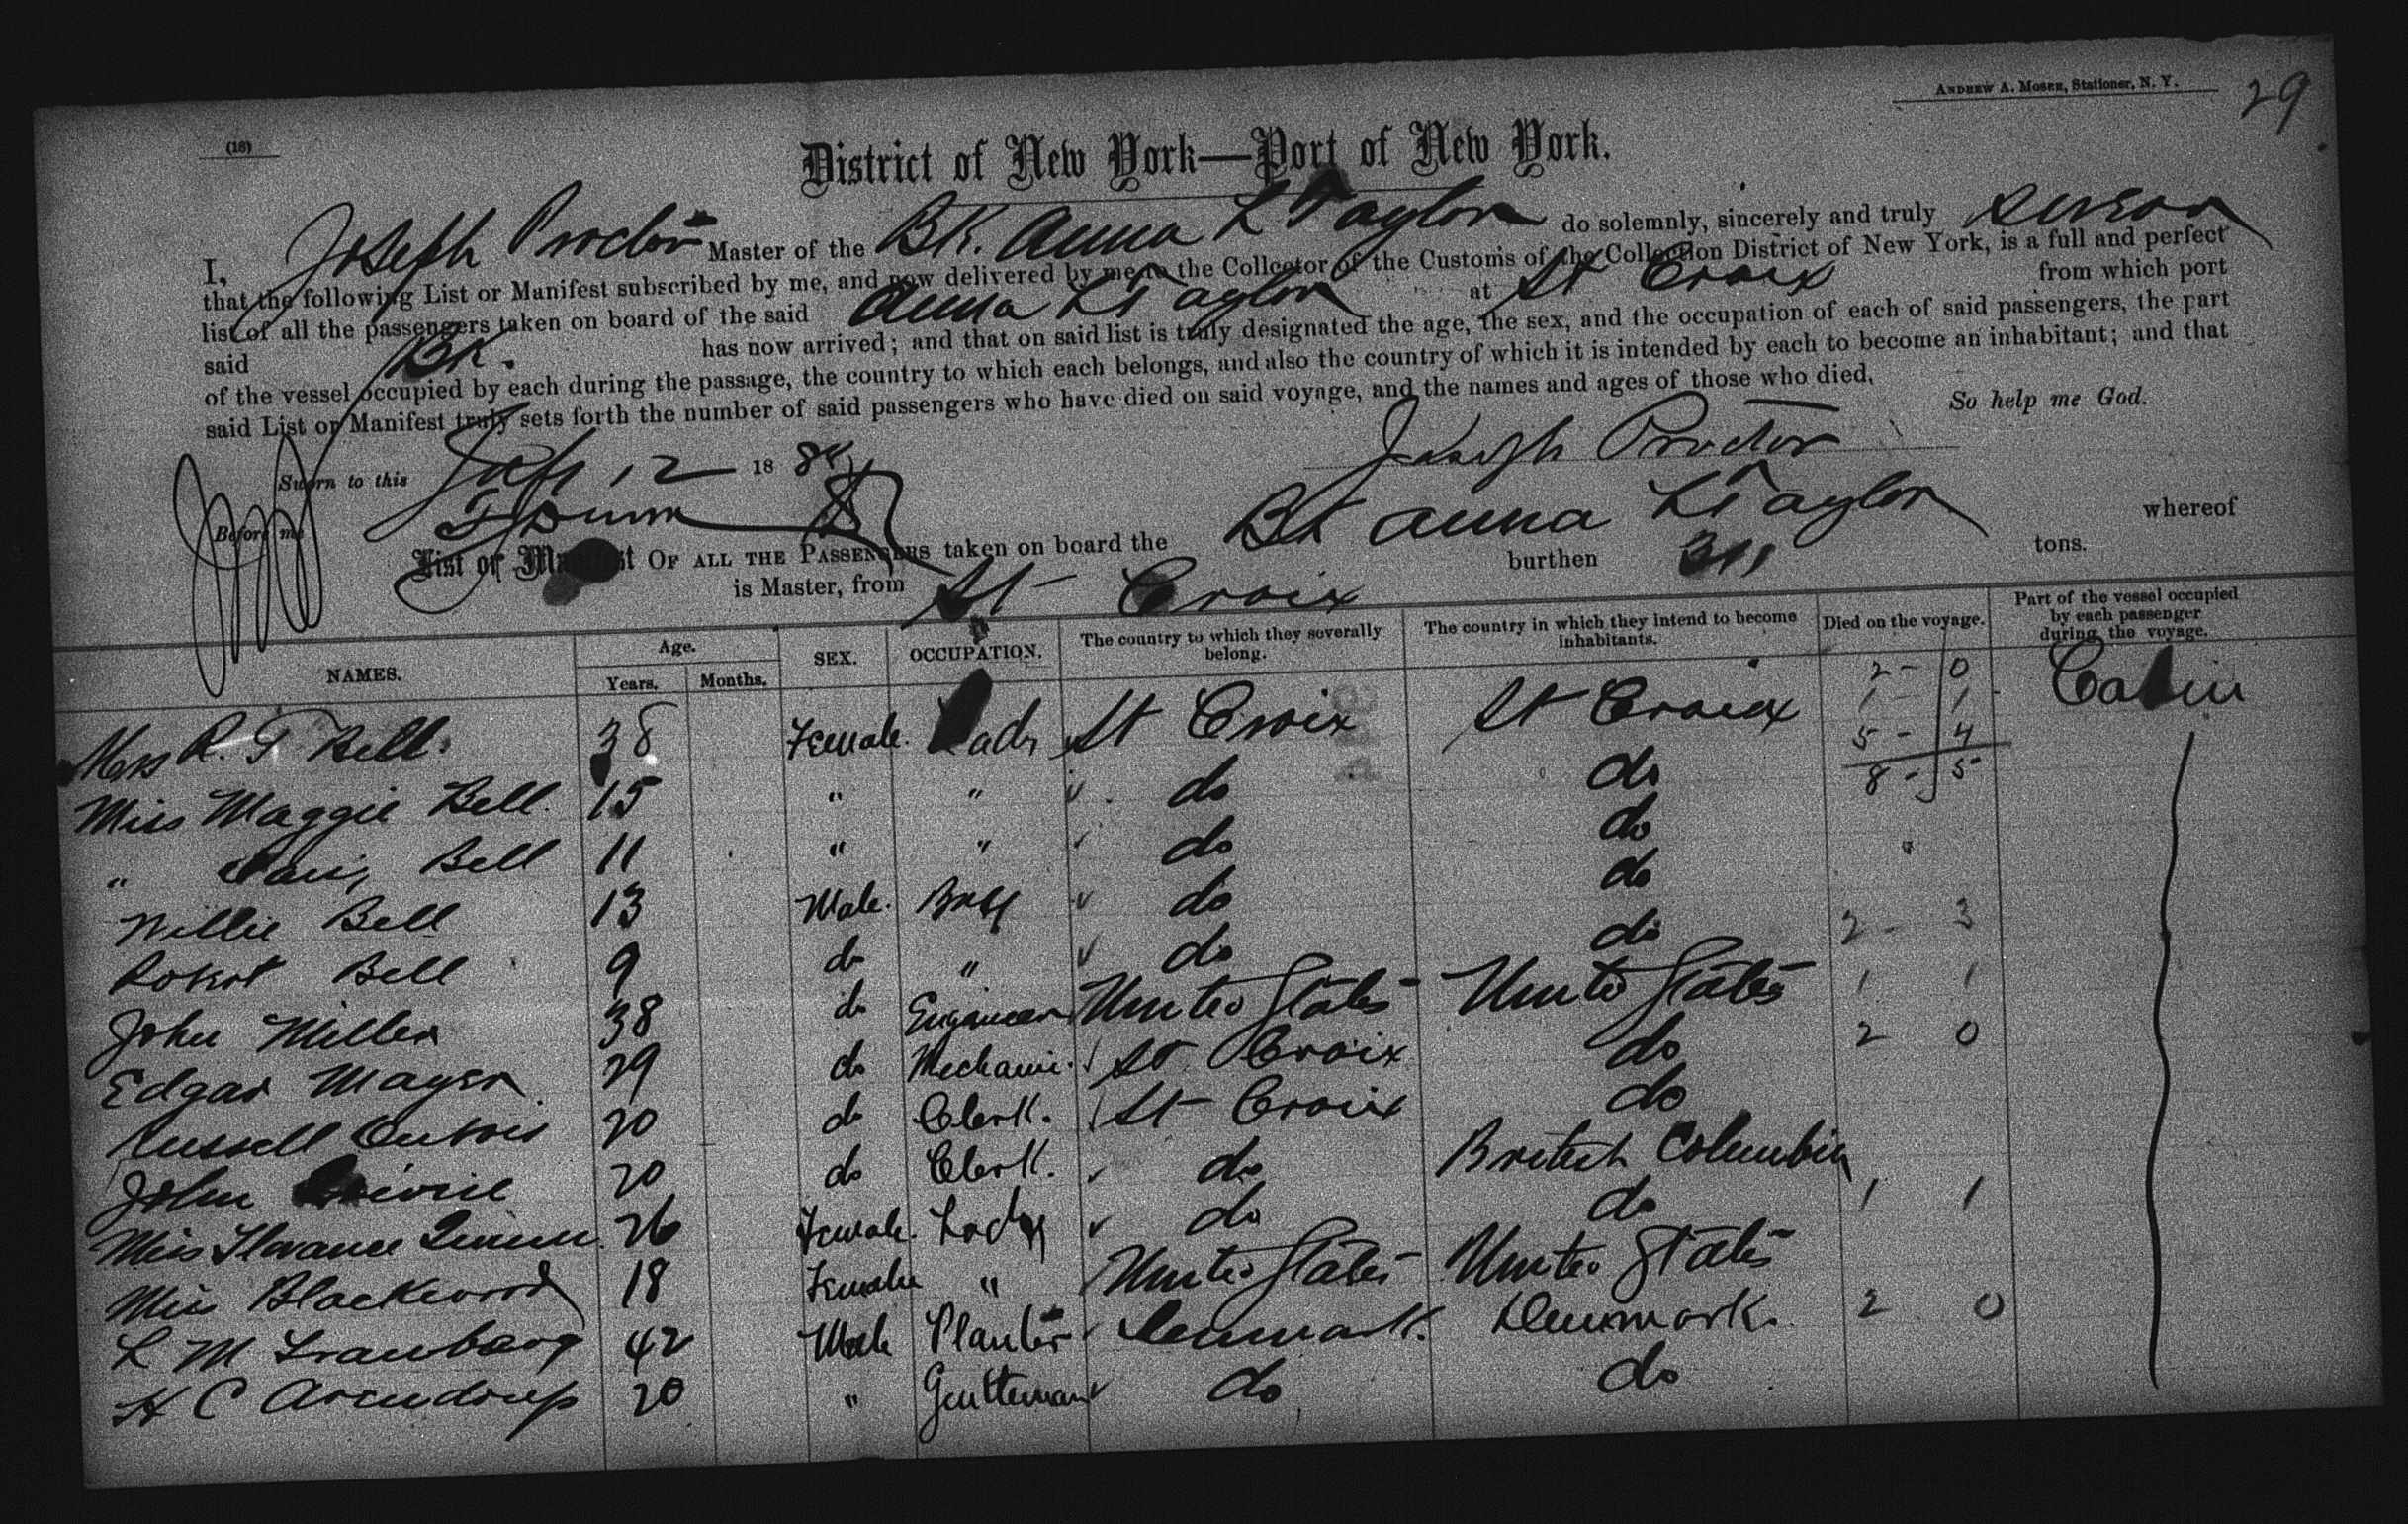 ANDREW A. MOSER, Stationer, N. Y.
29
(16)
District of New York—Port of New York.
I, Joseph Proctor Master of the Bk. Anna L Taylor do solemnly, sincerely and truly swear
that the following List or Manifest subscribed by me, and now delivered by me to the Collector of the Customs of the Collection District of New York, is a full and perfect
list of all the passengers taken on board of the said Anna L Taylor at St Croix from which port
said Bk. has now arrived; and that on said list is truly designated the age, the sex, and the occupation of each of said passengers, the part
of the vessel occupied by each during the passage, the country to which each belongs, and also the country of which it is intended by each to become an inhabitant; and that
said List or Manifest truly sets forth the number of said passengers who have died on said voyage, and the names and ages of those who died.
So help me God.
Sworn to this 12 18 84 Joseph Proctor
Before me
List or Manifest OF ALL THE PASSENGERS taken on board the Bk Anna L Taylor whereof
is Master, from St Croix burthen 311 tons.
NAMES. Age. Years. Months. SEX. OCCUPATION. The country to which they severally belong. The country in which they intend to become inhabitants. Died on the voyage. Part of the vessel occupied by each passenger during the voyage.
2 - 0
1 - 1
5 - 4
8 - 5
Mrs R. T Bell 38 Female. Lady St Croix St Croix Cabin
Miss Maggie Bell 15 " " do do
" Bell 11 " " do do
Willie Bell 13 Male. Boy do do
Robert Bell 9 do " do do 2 - 3
John Miller 38 do Engineer United States United States 1 1
Edgar Mayer 29 do Mechanic. St Croix do 2 0
Russell Dubois 20 do Clerk. St Croix do
John 20 do Clerk. do British Columbia
Miss Florance 26 Female. Lady do do 1 1
Miss Blackwood 18 Female " United States United States
L M 42 Male Planter Denmark. Denmark. 2 0
H C Arendrup 20 " Gentleman do do